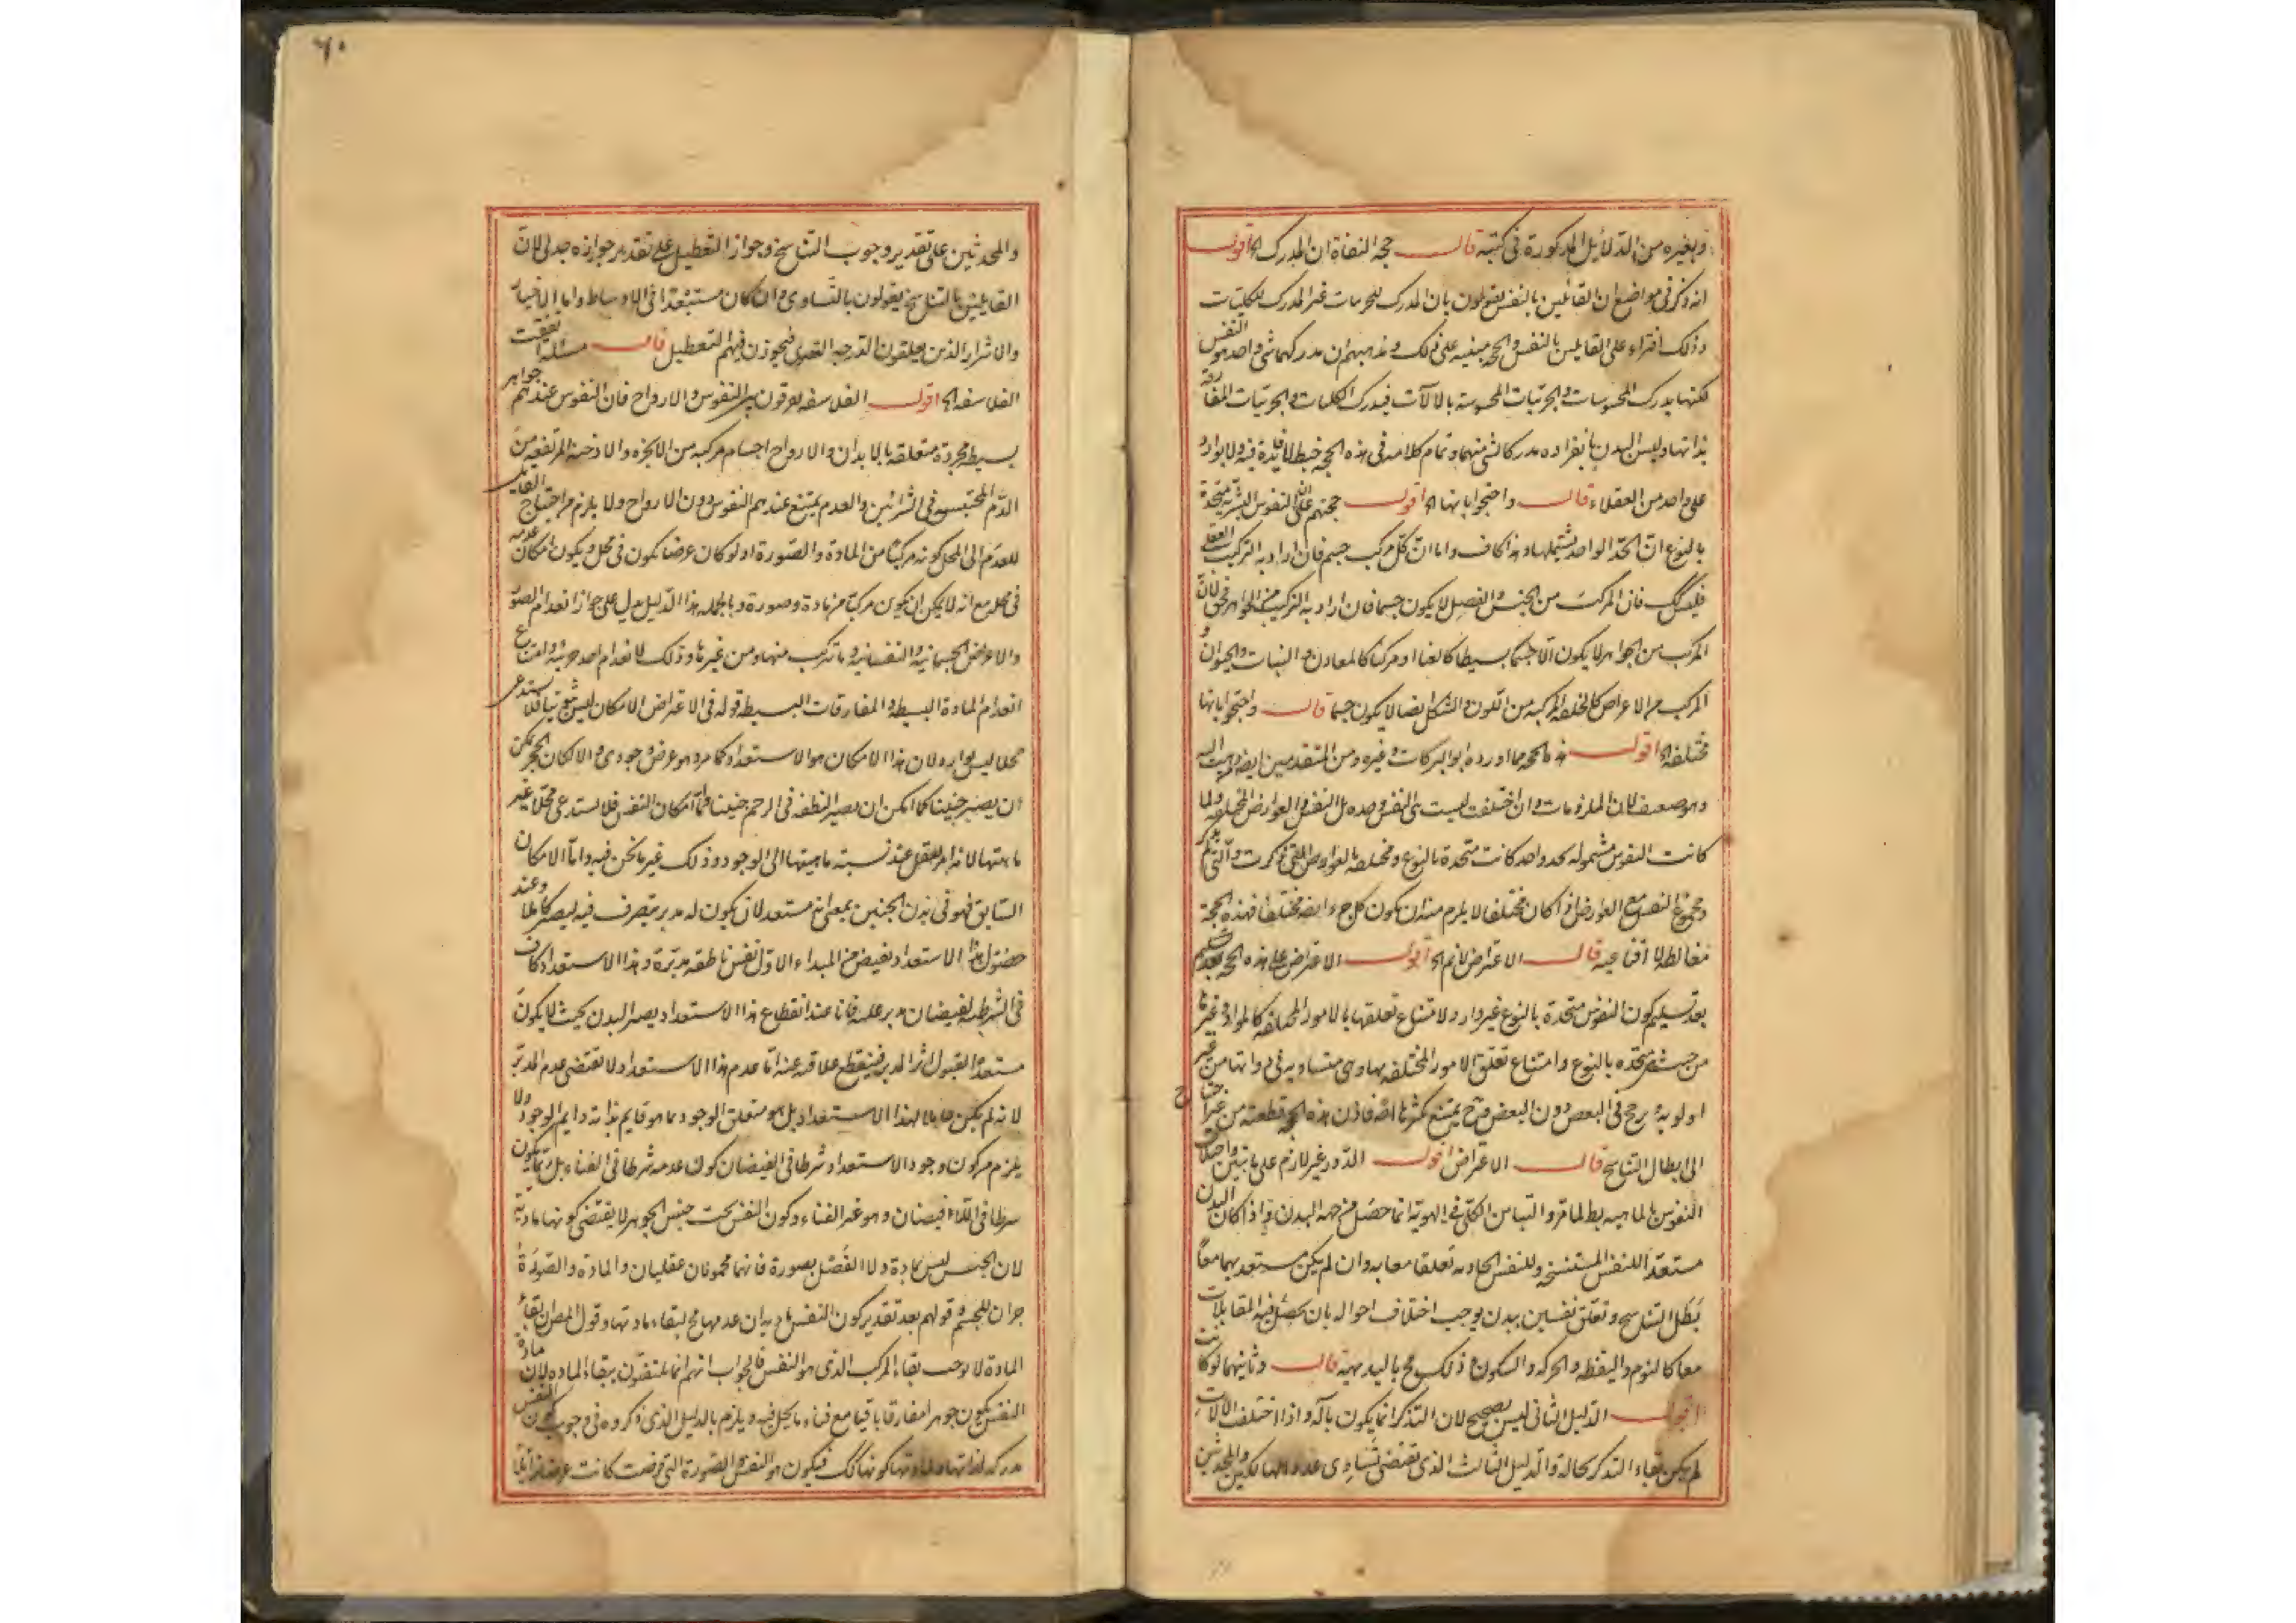 وبغيره من الدلائل المذكورة في كتبه قال حجة النفاة ان المدرك الخ اقول
انه ذكر في مواضع ان القائلين بالنفس يقولون بان المدرك للجزئيات غير المدرك للكليات
وذلك افتراء على القائلين بالنفس والحجة مبنية على ذلك ومذهبهم ان مدركهما شئ واحد هو النفس
لكنها يدرك المحسوسات والجزئيات المحسوسة بالآلات فيدرك الكليات والجزئيات المفارقة
بذاتها وليس البدن بانفراده مدركا لشئ منهما وتمام كلامه في هذه الحجة خبط لا فائدة فيه ولا يوارد
على واحد من العقلاء قال واحتجوا بانها الخ اقول حجتهم على ان النفوس البشرية متحدة
بالنوع ان الحد الواحد يشتملها وهذا كاف واما ان كل مركب جسم فان اراد به التركيب العقلي
فليس كك فان المركب من الجنس والفصل لا يكون جسما فان اراد به التركيب من الجواهر فحق لان
المركب من الجواهر لا يكون الا جسما بسيطا كالعناصر او مركبا كالمعادن و النبات والحيوان و
المركب من الاعراض كالخلقة المركبة من اللون والشكل ايضا لا يكون جسما قال واحتجوا بانها
مختلفة الخ اقول هذه الحجة مما اورده ابو البركات وغيره ومن المتقدمين ايضا ذهب اليه
وهو ضعيف لان الملزومات وان اختلفت ليست هي النفس وحده بل النفس والعوارض المختلفة ولما
كانت النفوس مشمولة بحد واحد كانت متحدة بالنوع ومختلفة بالعوارض التي ذكرت والتي لم يذكر
ومجموع النفس مع العوارض اذا كان مختلفا لا يلزم منه ان يكون كل جزء ايضا مختلفا فهذه الحجة
مغالطة لا اقناعية قال الاعتراض لانم الخ اقول الاعتراض على هذه الحجة
بعد تسليم كون النفوس متحدة بالنوع غير وارد لامتناع تعلقها بالامور المختلفة كالمواد وغيرها
من حيث هي متحدة بالنوع وامتناع تعلق الامور المختلفة بها وهي متساوية في ذواتها من غير
اولوية ترجح في البعض دون البعض فح يمتنع تكثرها اصلا فاذن هذه الحجة قطعية من غير احتياج
الى ابطال التناسخ قال الاعتراض اقول الدور غير لازم على ما تبين واختلاف
النفوس بالماهية بطل لما مر والتباين الكلي في الهوية انما حصل من جهة البدن واذا كان البدن
مستعدا للنفس المستنسخة وللنفس الحادثة تعلقا معا به وان لم يكن مستعد بهما معا
بطل التناسخ وتعلق نفسين ببدن يوجب اختلاف احواله بان يحصل فيه المتقابلات
معا كالنوم واليقظة والحركة والسكون و ذلك مح بالبديهية قال وثانيهما لو كانت
اقول الدليل الثاني ليس بصحيح لان التذكر انما يكون بآلة واذا اختلفت الآلات
لم يكن بقاء التذكر بحاله والدليل الثالث الذي يقتضي تساوي عدد الهالكين والمحدثين
٦٠
والمحدثين على تقدير وجوب التناسخ وجواز التعطيل على تقدير جوازه جدلي لان
القائلين بالتناسخ يقولون بالتساوي وان كان مستبعدا في الاوساط واما الاخيار
والاشرار الذين يبلغون الدرجة القصوى فيجوزن فيهم التعطيل قال مسئلة اتفقت
الفلاسفة الخ اقول الفلاسفة يفرقون بين النفوس والارواح فان النفوس عندهم جواهر
بسيطة مجردة متعلقة بالابدان والارواح اجسام مركبة من الابخرة والادخنة المرتفعة من
الدم المحتبس في الشرائين والعدم يمتنع عندهم النفوس دون الارواح ولا يلزم من احتياج القابل
للعدم الى المحل كونه مركبا من المادة والصورة اذ لو كان عرضا يكون في محل ويكون امكان عدمه
في محله مع انه لا يمكن ان يكون مركبا من مادة وصورة وبالجملة هذا الدليل يدل على جواز انعدام الصور
والاعراض الجسمانية والنفسانية وما تركب منها ومن غيرها وذلك لانعدام احد جزئيه وامتناع
انعدام المادة البسيطة والمفارقات البسيطة قوله في الاعتراض الامكان ليس ثبوتيا فلا يستدعي
محلا ليس بوارد لان هذا الامكان هو الاستعداد كما مر وهو عرض وجودي والا لكان الحجر يمكن
ان يصير جنينا كما امكن ان يصير النطفة في الرحم جنينا فاما امكان النفس فلا يستدعي محلا غير
ماهيتها لانه امر يعقل عند نسبة ماهيتها الى الوجود وذلك غير ما نحن فيه واما الامكان
السابق فهو في بدن الجنين بمعنى انه مستعد لان يكون له مدبر يتصرف فيه ليصير كاملا وعند
حصول هذا الاستعداد يفيض من المبداء الاول نفس ناطقة مدبرة وهذا الاستعداد كاف
في الشرطية لفيضان مدبر عليه فاذا عند انقطاع هذا الاستعداد يصير البدن بحيث لا يكون
مستعدا لقبول اثر المدبر فينقطع علاقته عنه اما عدم هذا الاستعداد لا تقتضي عدم المدبر
لانه لم يكن حاملا لهذا الاستعداد بل هو متعلق الوجود بما هو قايم بذاته دايم الوجود ولا
يلزم من كون وجود الاستعداد شرطا في الفيضان كون عدمه شرطا في الفناء بل ربما يكون
شرطا في اللا فيضان وهو غير الفناء وكون النفس تحت جنس الجوهر لا يقتضي كونها مادية
لان الجنس ليس بمادة ولا الفصل بصورة فانهما محمولان عقليان والمادة والصورة
جزءان للجسم وقولهم بعد تقدير كون النفس مادية ان عدمها مح لبقاء مادتها وقول المص ان بقاء
المادة لا يوجب بقاء المركب الذي هو النفس فالجواب انهم انما يكتفون ببقاء المادة لان مادة
النفس يكون جوهرا مفارقا باقيا مع فناء ما يحل فيه ويلزم بالدليل الذي ذكروه في وجوب كون النفس
مدركة لذاتها ولمادتها كونها كك فيكون هو النفس والصورة التي فرضت كانت عرضا زائلا